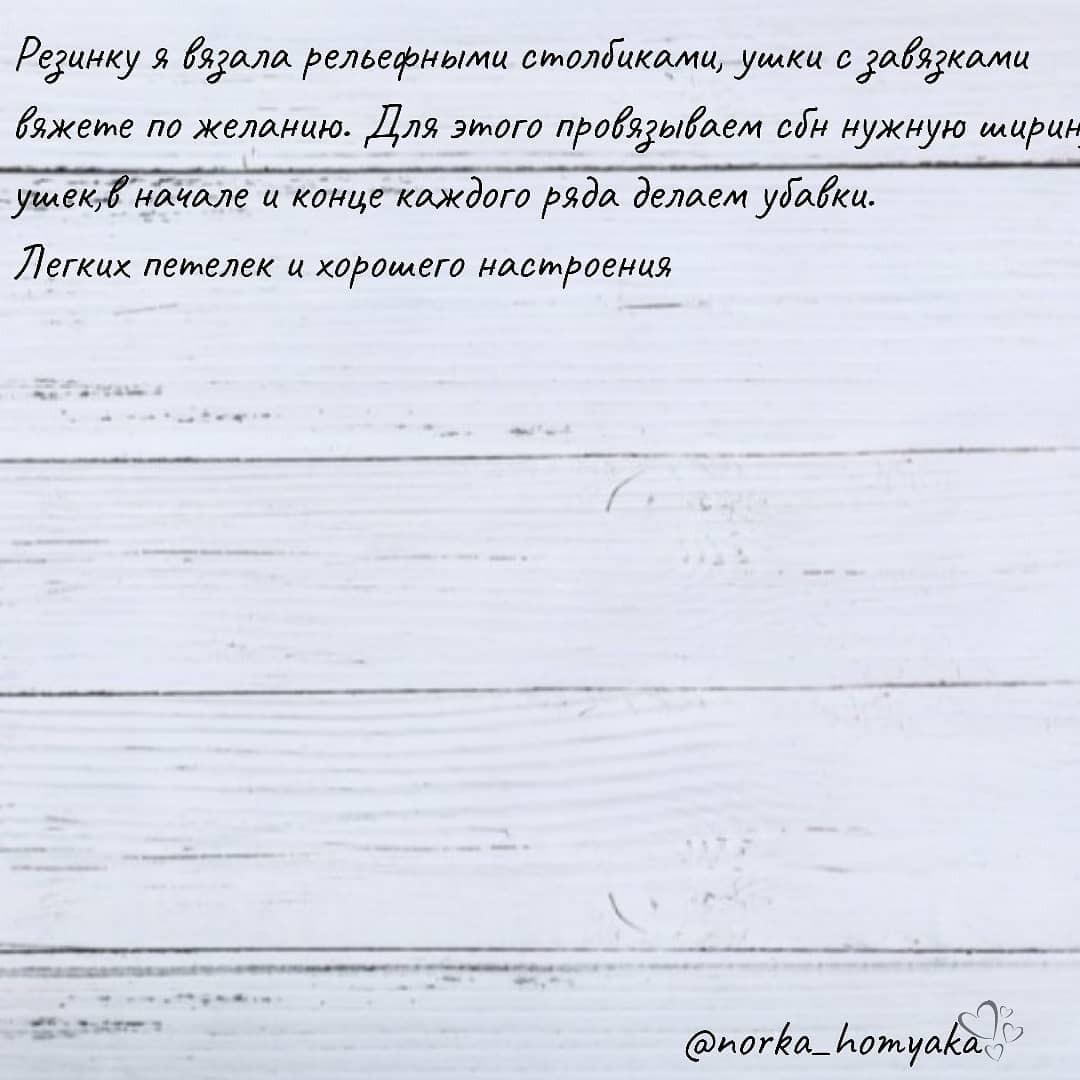 Резинку я вязала рельефными столбиками, ушки с завязками
вяжете по желанию. Для этого провязываем сбн нужную ширин
ушек,в начале и конце каждого ряда делаем убавки.
Легких петелек и хорошего настроения
@norka_homyaka